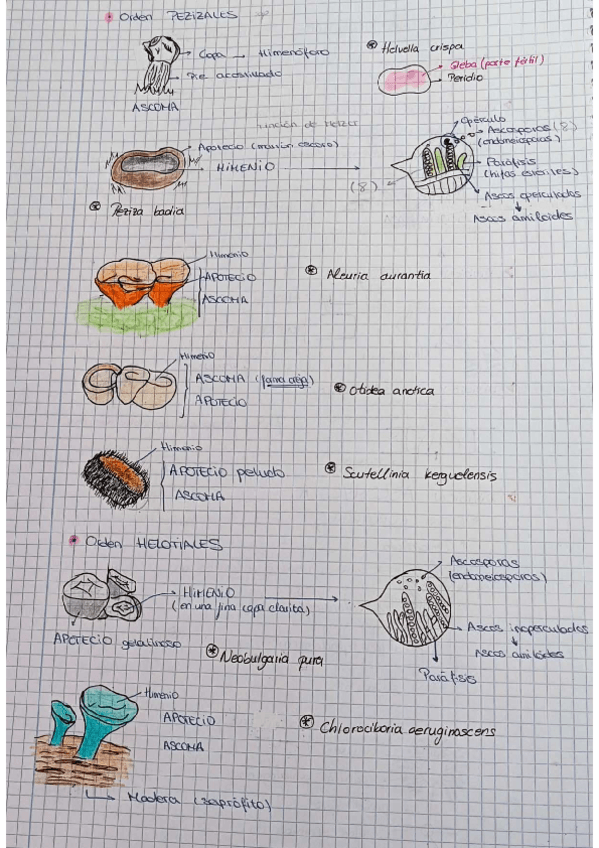 Orden PEZIZALES
Copa → Himenóforo
Pie acostillado
ASCOMA
Helvella crispa
Gleba (parte fértil)
Peridio
Apotecio (marrón oscuro)
HIMENIO
(8)
Peziza badia
Opérculo
Ascosporas (8)
(endomeiosporas)
Paráfisis
(hifas estériles)
Ascos operculados
Ascos amiloides
Himenio
APOTECIO
ASCOMA
Aleuria aurantia
Himenio
ASCOMA (forma oreja)
APOTECIO
Otidea onotica
Himenio
APOTECIO peludo
ASCOMA
Scutellinia kerguelensis
Orden HELOTIALES
HIMENIO
(en una fina capa clarita)
APOTECIO gelatinoso
Neobulgaria pura
Ascosporas
(endomeiosporas)
Ascos inoperculados
Ascos amiloides
Paráfisis
Himenio
APOTECIO
ASCOMA
Chlorociboria aeruginascens
Madera (saprófito)